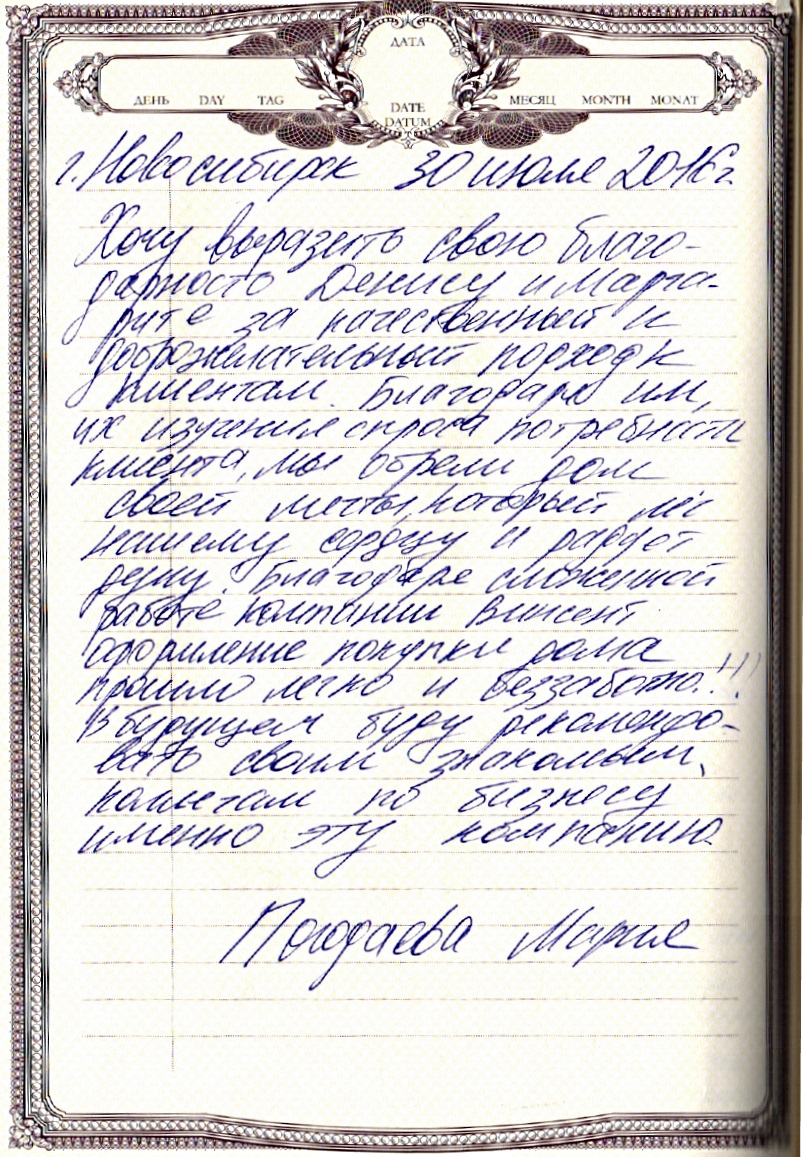 ДАТА
ДЕНЬ DAY TAG
DATE
DATUM
МЕСЯЦ MONTH MONAT
г. Новосибирск 30 июля 2016г.
Хочу выразить свою благо-
дарность Денису и Марга-
рите за качественный и
доброжелательный подход к
клиентам. Благодаря им,
их изучения спроса потребности
клиента, мы обрели дом
своей мечты, который лёг
нашему сердцу и радует
душу. Благодаря сложенной
работе компании Винсент
оформление покупки дома
прошло легко и беззаботно!!!
В будущем буду рекомендо-
вать своим знакомым,
по бизнесу
именно эту компанию.
Погодаева Мария